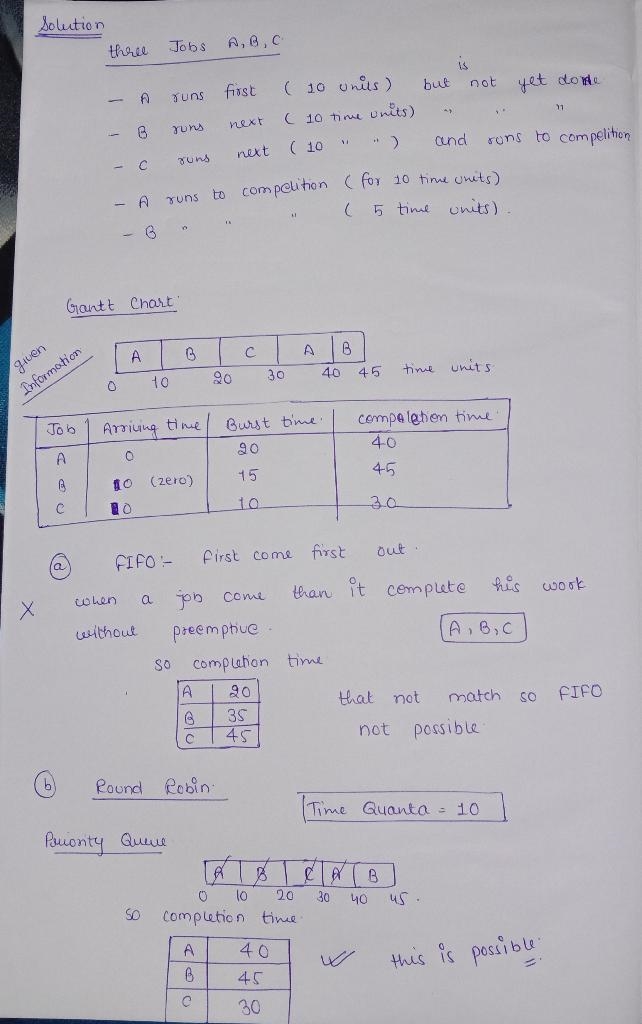 Solution
three Jobs A, B, C
— A runs first ( 10 units ) but is not yet done
— B runs next ( 10 time units) " " "
— C runs next ( 10 " " ) and runs to compelition
— A runs to compelition ( for 10 time units)
— B " " " ( 5 time units).
Gantt Chart:
given Information
A B C A B
0 10 20 30 40 45 time units
Job Arriving time Burst time. compelation time
A 0 20 40
B 0 (zero) 15 45
C 0 10 30
(a) FIFO :- First come first out.
X when a job come than it complete his work
without preemptive. A, B, C
so completion time
A 20
B 35
C 45
that not match so FIFO
not possible
(b) Round Robin.
Time Quanta = 10
Priority Queue
A B C A B
0 10 20 30 40 45.
so completion time.
A 40
B 45
C 30
✓ this is possible.